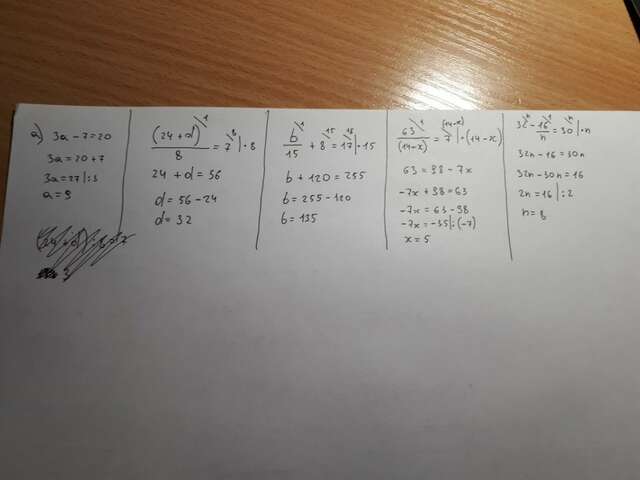 a) 3a - 7 = 20
3a = 20 + 7
3a = 27 | : 3
a = 9
(24 + d) \1
8
= 7 \8 | · 8
24 + d = 56
d = 56 - 24
d = 32
b \1
15
+ 8 \15 = 17 \15 | · 15
b + 120 = 255
b = 255 - 120
b = 135
63 \1
(14 - x)
= 7 \(14-x) | · (14 - x)
63 = 98 - 7x
-7x + 98 = 63
-7x = 63 - 98
-7x = -35 | : (-7)
x = 5
32 \n - 16 \1
n
= 30 \n | · n
32n - 16 = 30n
32n - 30n = 16
2n = 16 | : 2
n = 8